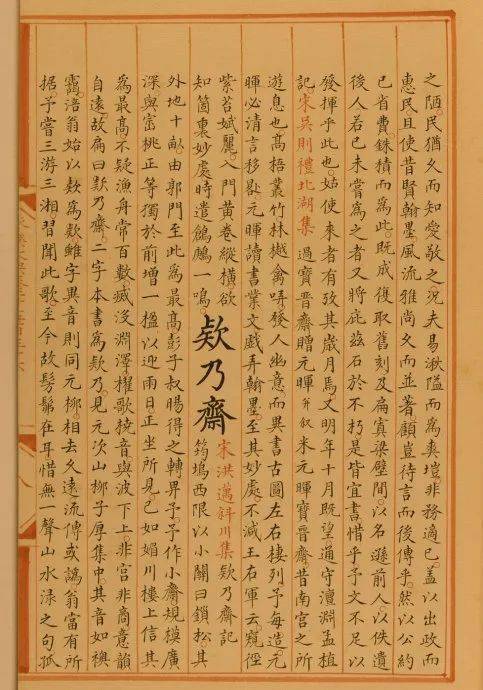 之陋民猶久而知愛敬之況夫易湫隘而為爽塏非務適已蓋以出政而
惠民且使昔賢翰墨風流雅尚久而並著顧豈待言而後傳乎然以公約
已省費銖積而為此既成復取舊刻及扁寘梁壁間以名遜前人以佚遺
後人若已未嘗為之者又將庇茲石於不朽是皆宜書惜乎予文不足以
發揮乎此也姑使來者有攷其歲月焉又明年十月既望通守澶淵孟植
記宋吳則禮北湖集 過寶晉齋贈元暉并叙米元暉寶晉齋昔南宮之所
遊息也髙梧叢竹林樾禽哢發人幽意而異書古圖左右棲列予每造元
暉必清言移晷元暉讀書業文戲弄翰墨至其妙處不減王右軍云窺徑
紫苔斌麗入門黃卷縱橫欲
知箇裏妙處時遣鵂鶹一鳴
欵乃齋
宋洪邁斜川集欵乃齋記
筠塢西限以小關曰鎖松其
外地十畝由郭門至此為最高彭子叔暘得之轉畀予予作小齋規模廣
深與窑桃正等獨於前增一楹以迎雨日正坐所見已如媚川樓上信其
為最高不疑漁舟常百數滅沒淵潭櫂歌橈音與波下上非宮非商意韻
自遠故扁曰欵乃齋二字本書為欸乃見元次山柳子厚集中其音如襖
靄涪翁始以欸為欵雖字異音則同元柳相去久遠流傳或譌翁富有所
据予嘗三游三湘習聞此歌至今故髣髴在耳惜無一聲山水渌之句孤